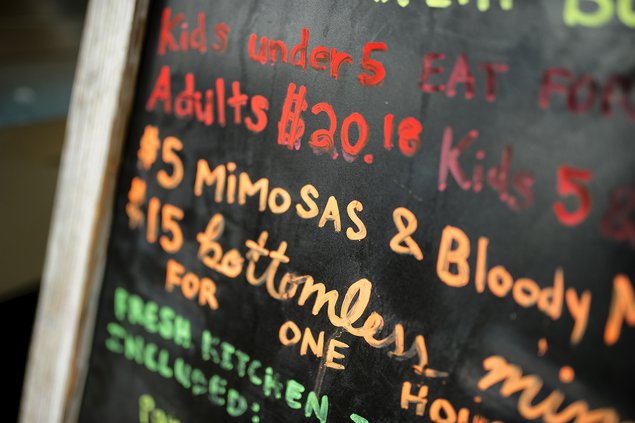 Kids under 5 EAT FOR
Adults $20.18 Kids 5 &
$5 MiMOSAS & Bloody M
$15 bottomless mim
FOR ONE HOU
FRESH KITCHEN
INCLUDED: